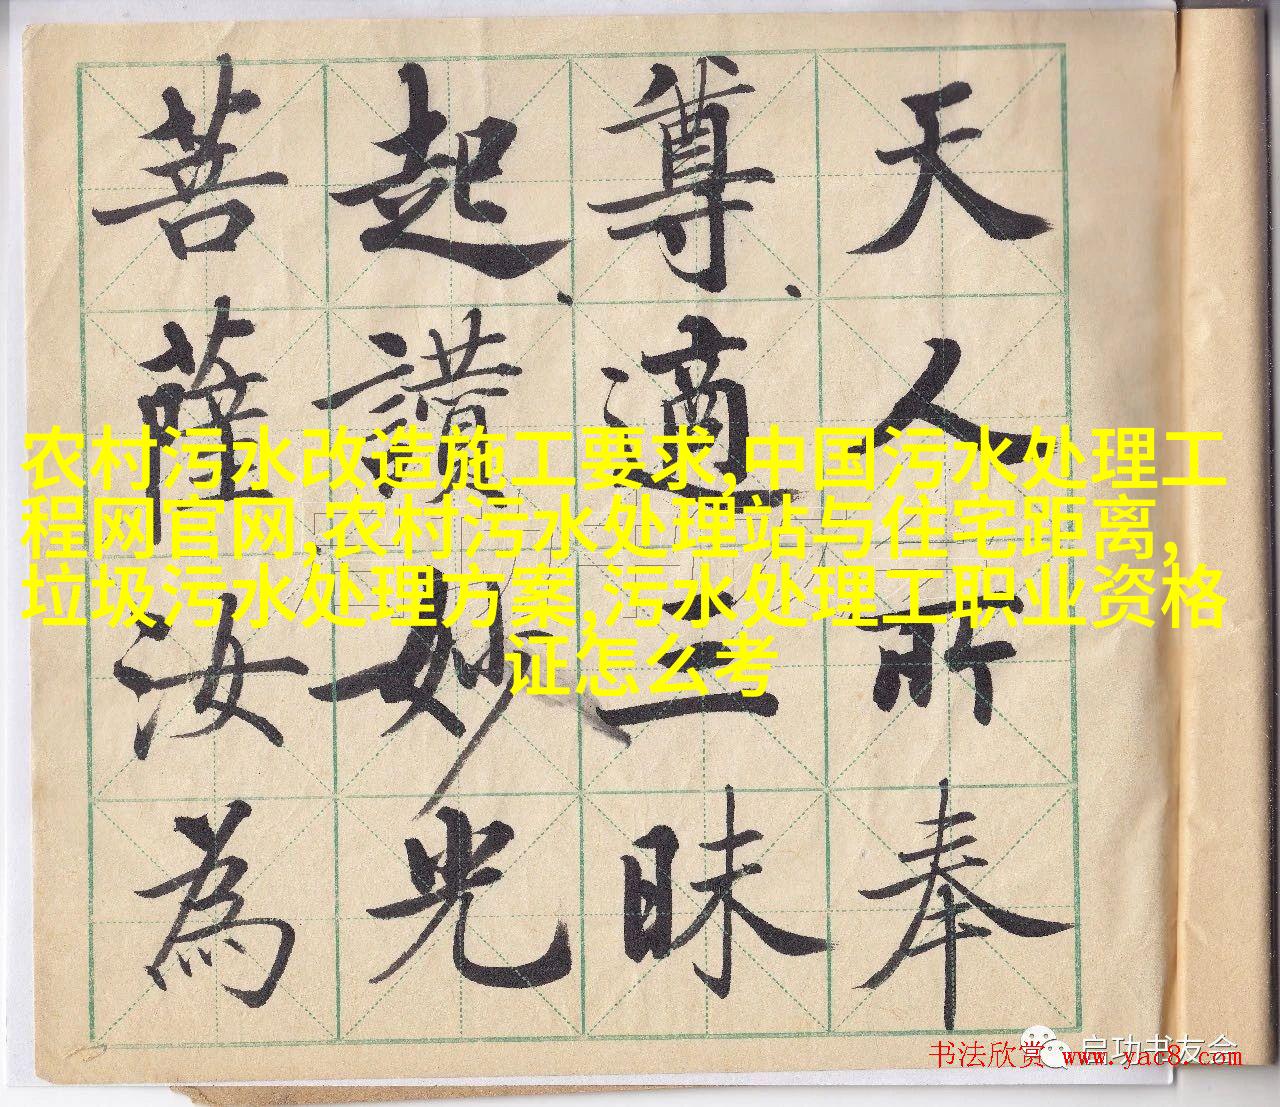 天人所奉
尊適三昧
起讚妙光
菩薩汝為
农村污水改造施工要求,中国污水处理工
程网官网,农村污水处理站与住宅距离,
垃圾污水处理方案,污水处理工职业资格
证怎么考
启功书友会
书法欣赏 www.yac8.com